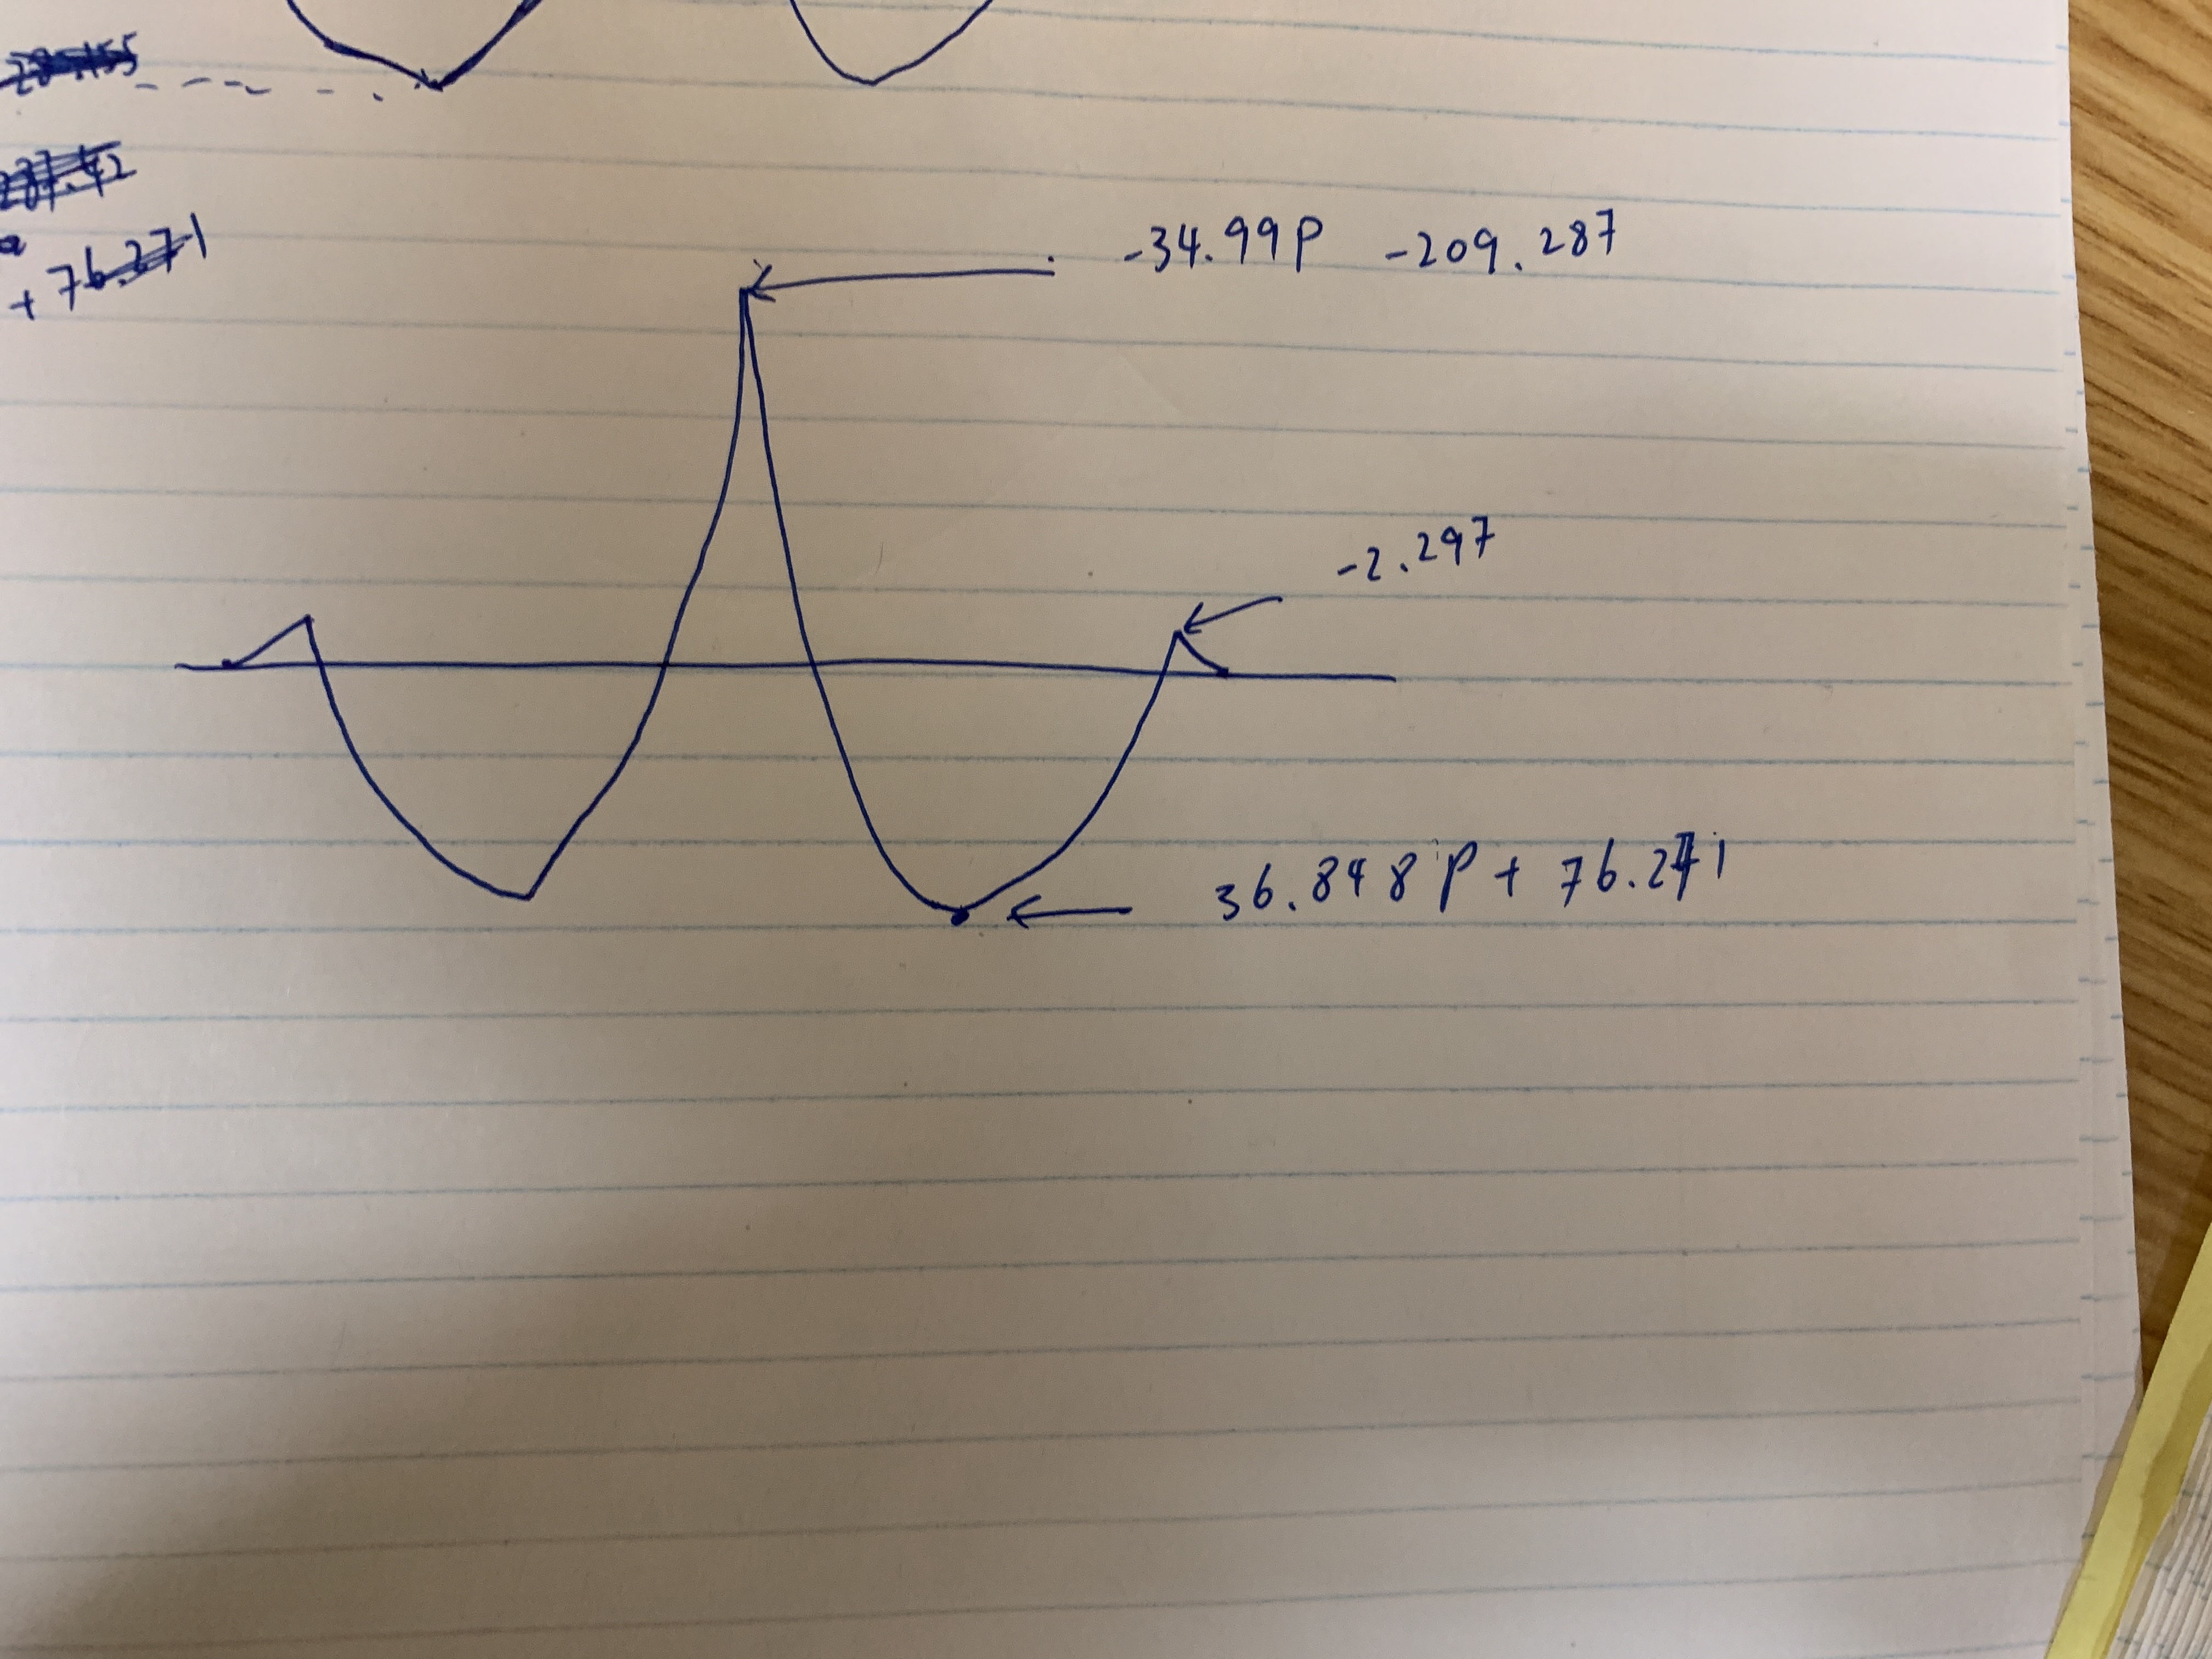 + 76.271
-34.99P -209.287
-2.297
36.848P + 76.271